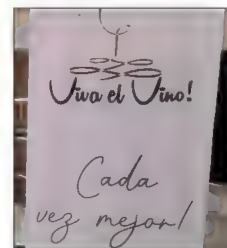 Viva el Vino!
Cada
vez mejor!